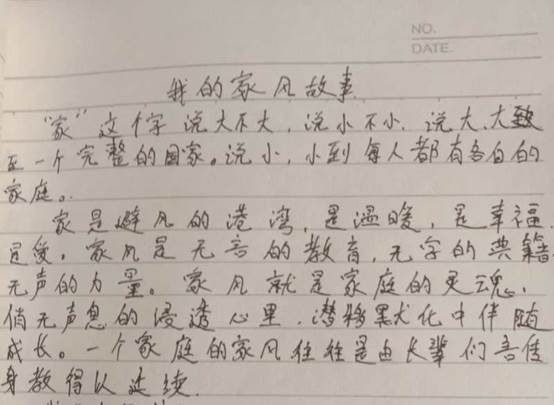 NO.
DATE.
我的家风故事
“家”这个字说大不大，说小不小，说大、大致
至一个完整的国家。说小，小到每人都有各自的
家庭。
家是避风的港湾，是温暖，是幸福，
是爱。家风是无言的教育，无字的典籍，
无声的力量。家风就是家庭的灵魂，
俏无声息的浸透心里，潜移默化中伴随
成长。一个家庭的家风往往是由长辈们言传
身教得以延续